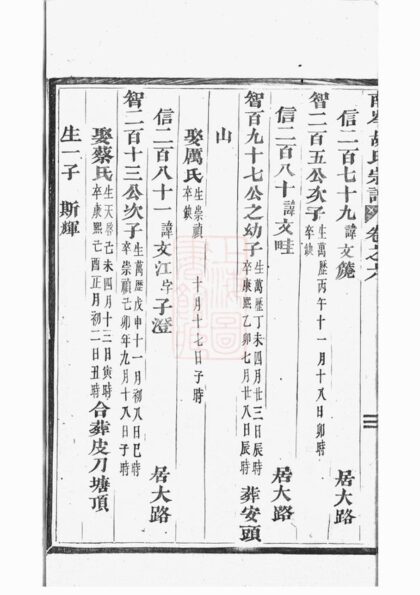 胡氏宗譜 卷之六
信二百七十九 諱文 居大路
智二百五公次子 生萬歷丙午十一月十八日卯時 卒缺
信二百八十 諱文畦 居大路
智百九十七公之幼子 生萬歷丁未四月廿三日辰時 卒康熙乙卯七月廿八日辰時 葬安頭
山
娶厲氏 生崇禎 十月十七日子時 卒缺
信二百八十一 諱文江字子澄 居大路
智二百十三公次子 生萬歷戊申十一月初八日巳時 卒崇禎己卯年九月十八日子時
娶蔡氏 生天啓己未四月十三日寅時 卒康熙己酉正月初二日丑時 合葬皮刀塘頂
生一子 斯輝